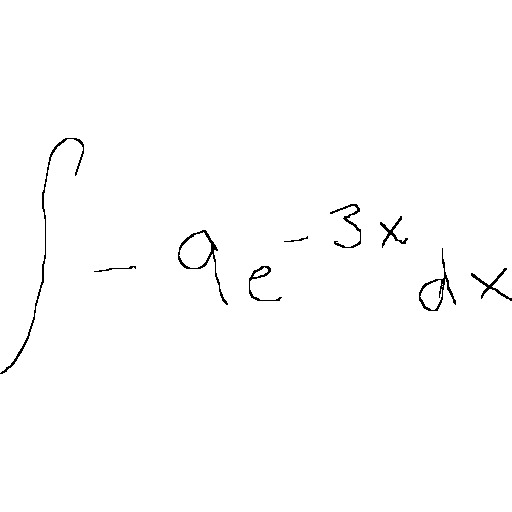 ∫ - 9e^{-3x} dx